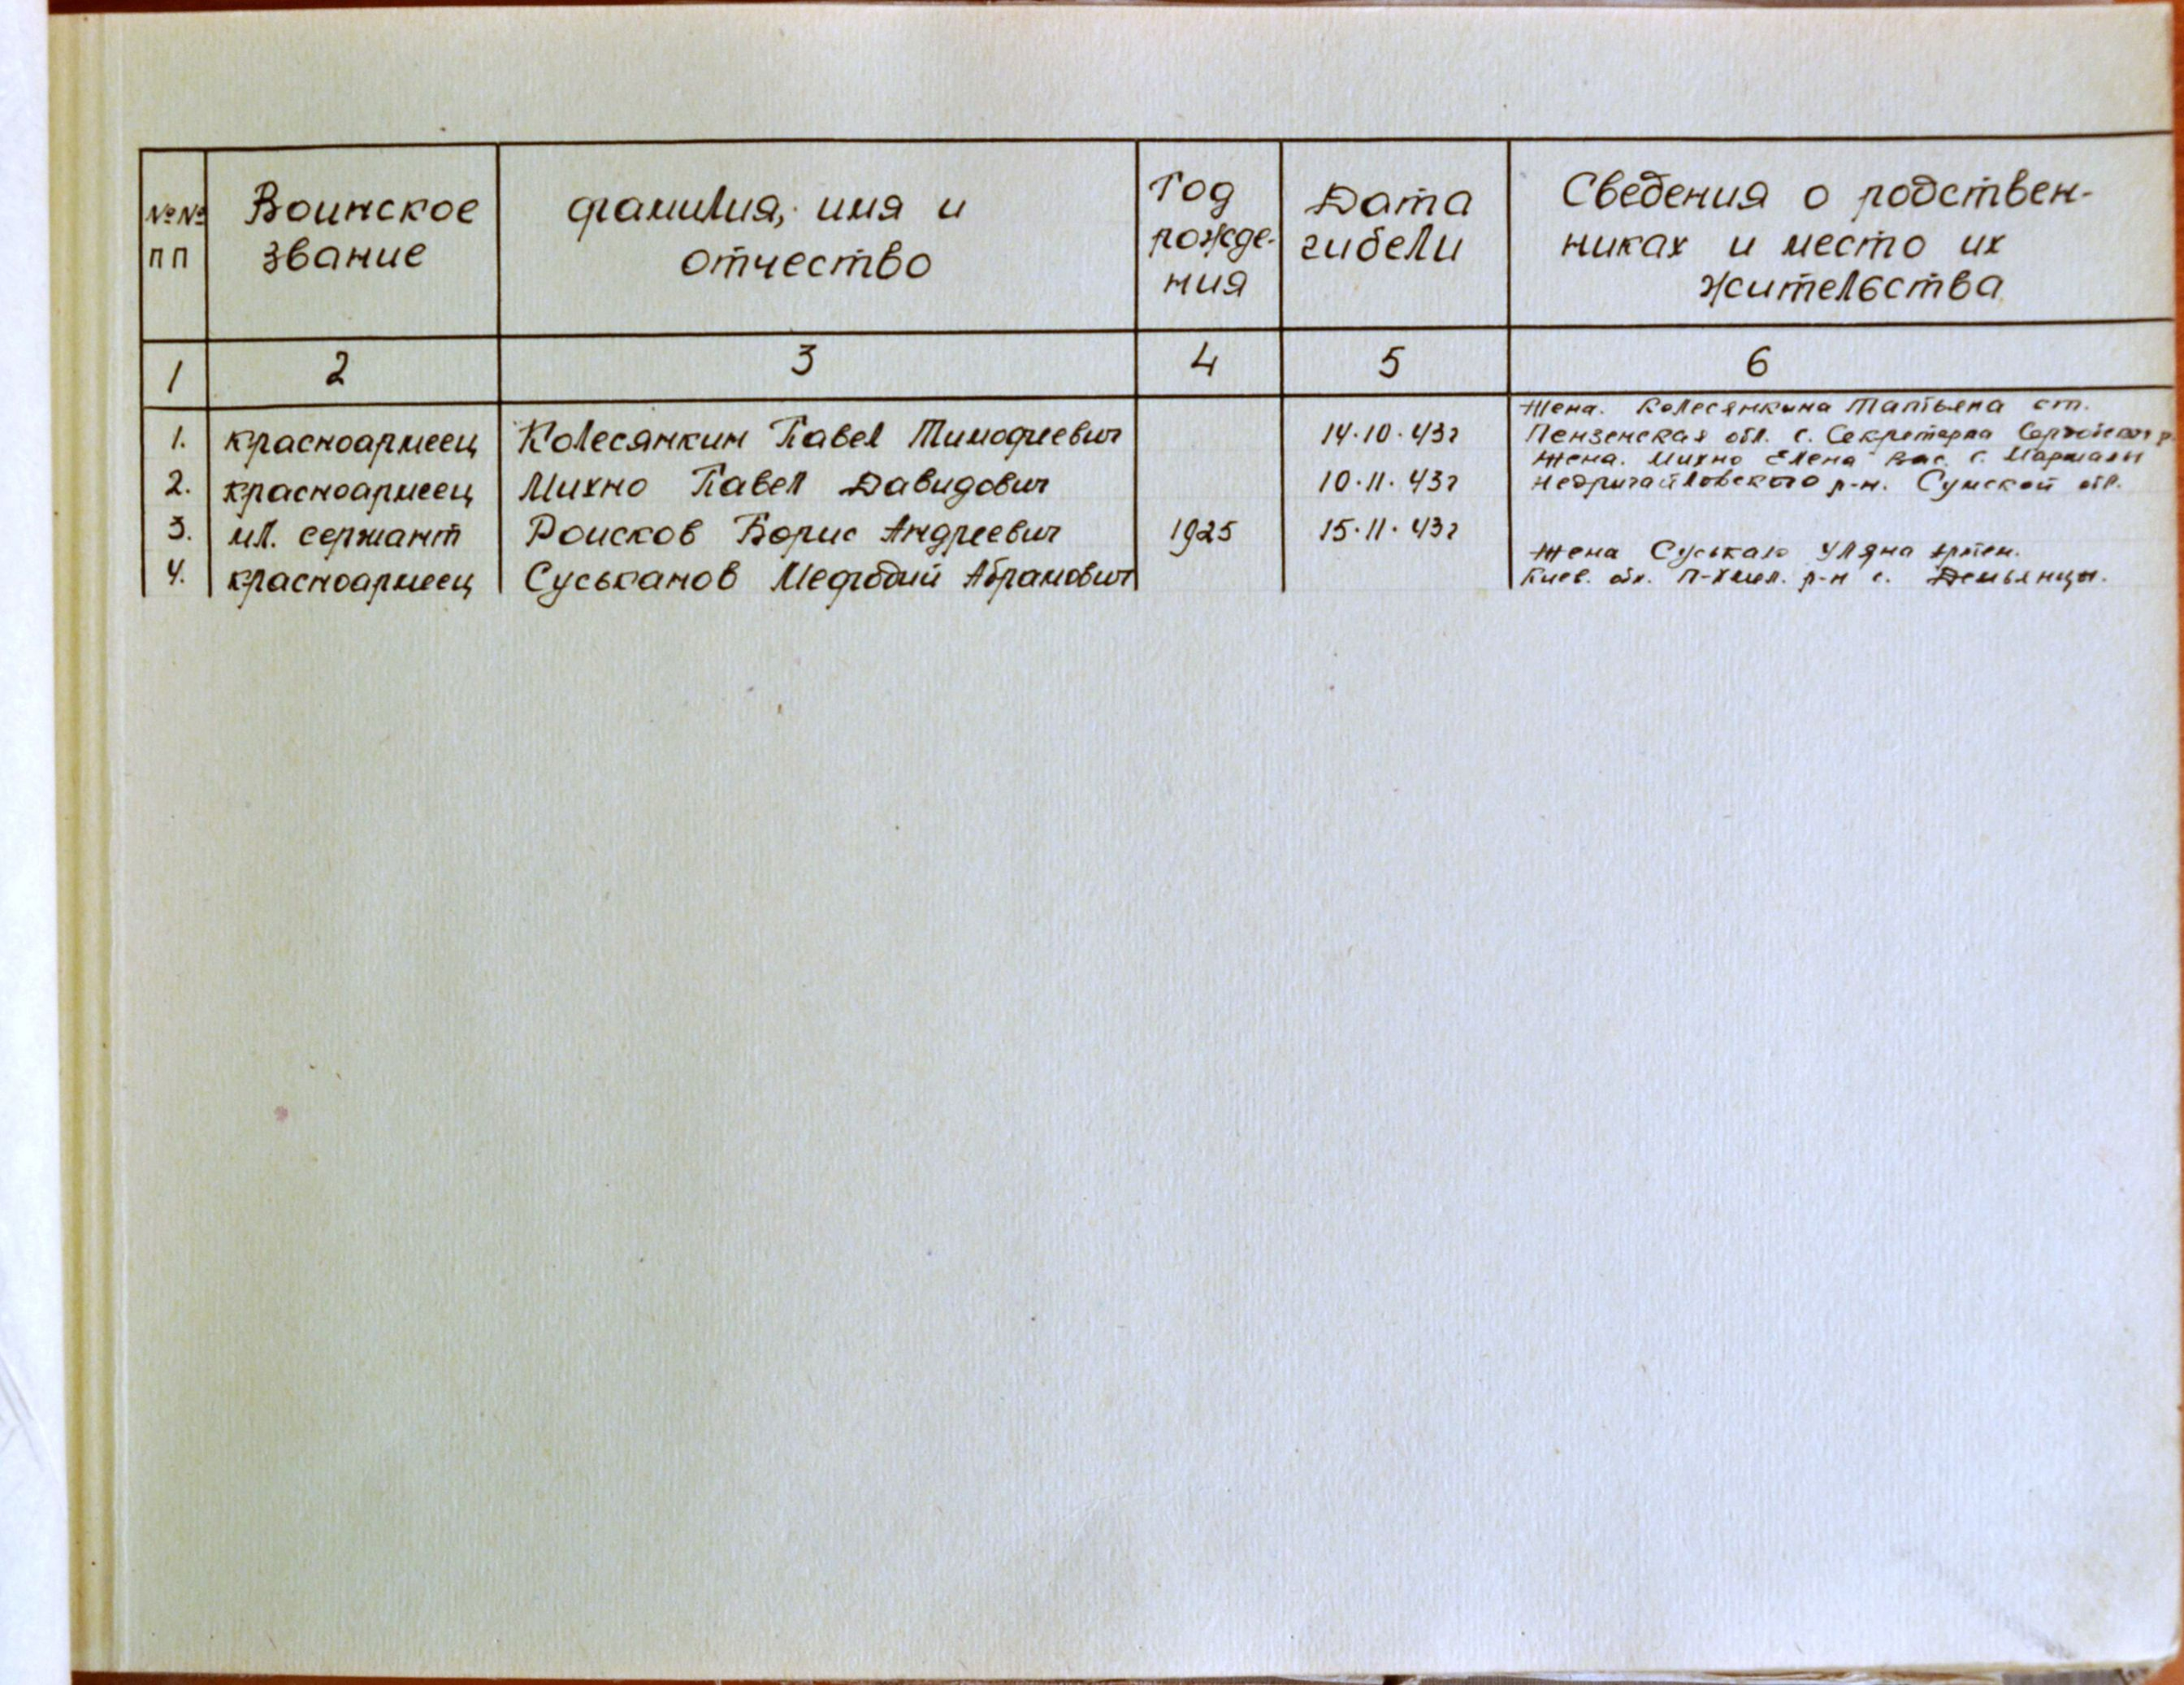 №№ пп
Воинское звание
фамилия, имя и отчество
Год рожде-ния
Дата гибели
Сведения о родствен-
никах и место их
жительства
1 2 3 4 5 6
Жена. Колесянкина Татьяна ст.
1. красноармеец Колесянкин Павел Тимофеевич 14.10.43г Пензенская обл. с. Секретарка
Жена. Михно Елена Вас. с.
2. красноармеец Михно Павел Давидович 10.11.43г Недригайловского р-н. Сумской обл.
3. мл. сержант Роисков Борис Андреевич 1925 15.11.43г
Жена Суськало Уляна
4. красноармеец Суськанов Мефодий Абрамович Киев. обл. П-Хмел. р-н с. Демьянцы.